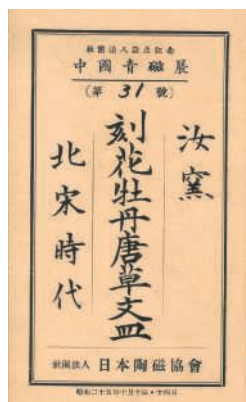 社團法人設立記念
中國青磁展
(第 31 號)
汝窯
刻花牡丹唐草文皿
北宋時代
社團法人 日本陶磁協會